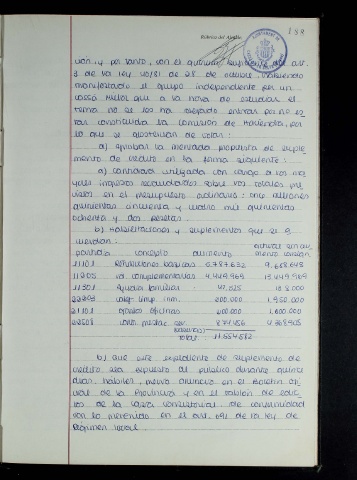 Rúbrica del Alcalde
189
AJUNTAMENT DE
ción, y por tanto, con el quórum del art.
3 de la Ley 40/81 de 28 de octubre, habiendo
manifestado el grupo independiente por un
que a la hora de estudiar el
tema no se les ha dejado entrar por no es-
tar constituida la Comisión de Hacienda, por
lo que se abstenían de votar:
a) aprobar la mentada propuesta de suple-
mento de crédito en la forma siguiente:
a) cantidad utilizada con cargo a los ma-
yores ingresos recaudados sobre los totales pre-
vistos en el presupuesto ordinario: once millones
quinientas cincuenta y cuatro mil quinientas
ochenta y dos pesetas.
b) Habilitaciones y suplementos que se a-
cuerdan:
partida concepto aumento
11101 retribuciones básicas 5.787.632 9.668.648
11202 id. complementarias 4.449.969 13.449.969
11301 ayuda familiar 108.000
imp. 200.000 1.950.000
21101 gastos oficinas 1.600.000
874.456
total: 11.554.582
b) que este expediente de suplemento de
crédito sea expuesto al público durante quince
días hábiles, previo anuncio en el Boletín Ofi-
cial de la Provincia y en el tablón de edic-
tos de la Casa Consistorial de conformidad
con lo prevenido en el art. 691 de la Ley de
Régimen Local.